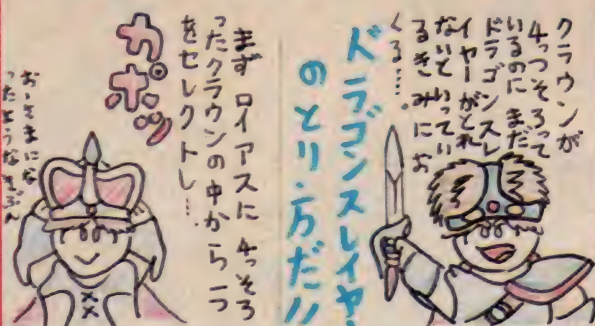 クラウンが
4っつそろって
いるのに まだ
ドラゴンスレ
イヤーがとれ
ないと いってい
るきみにお
くる…。
ドラゴンスレイヤー
のとり方だ!!
まず ロイアスに 4っそろ
ったクラウンの中から 一つ
をセレクトし…
カポッ
おーさまにな
ったようなきぶん